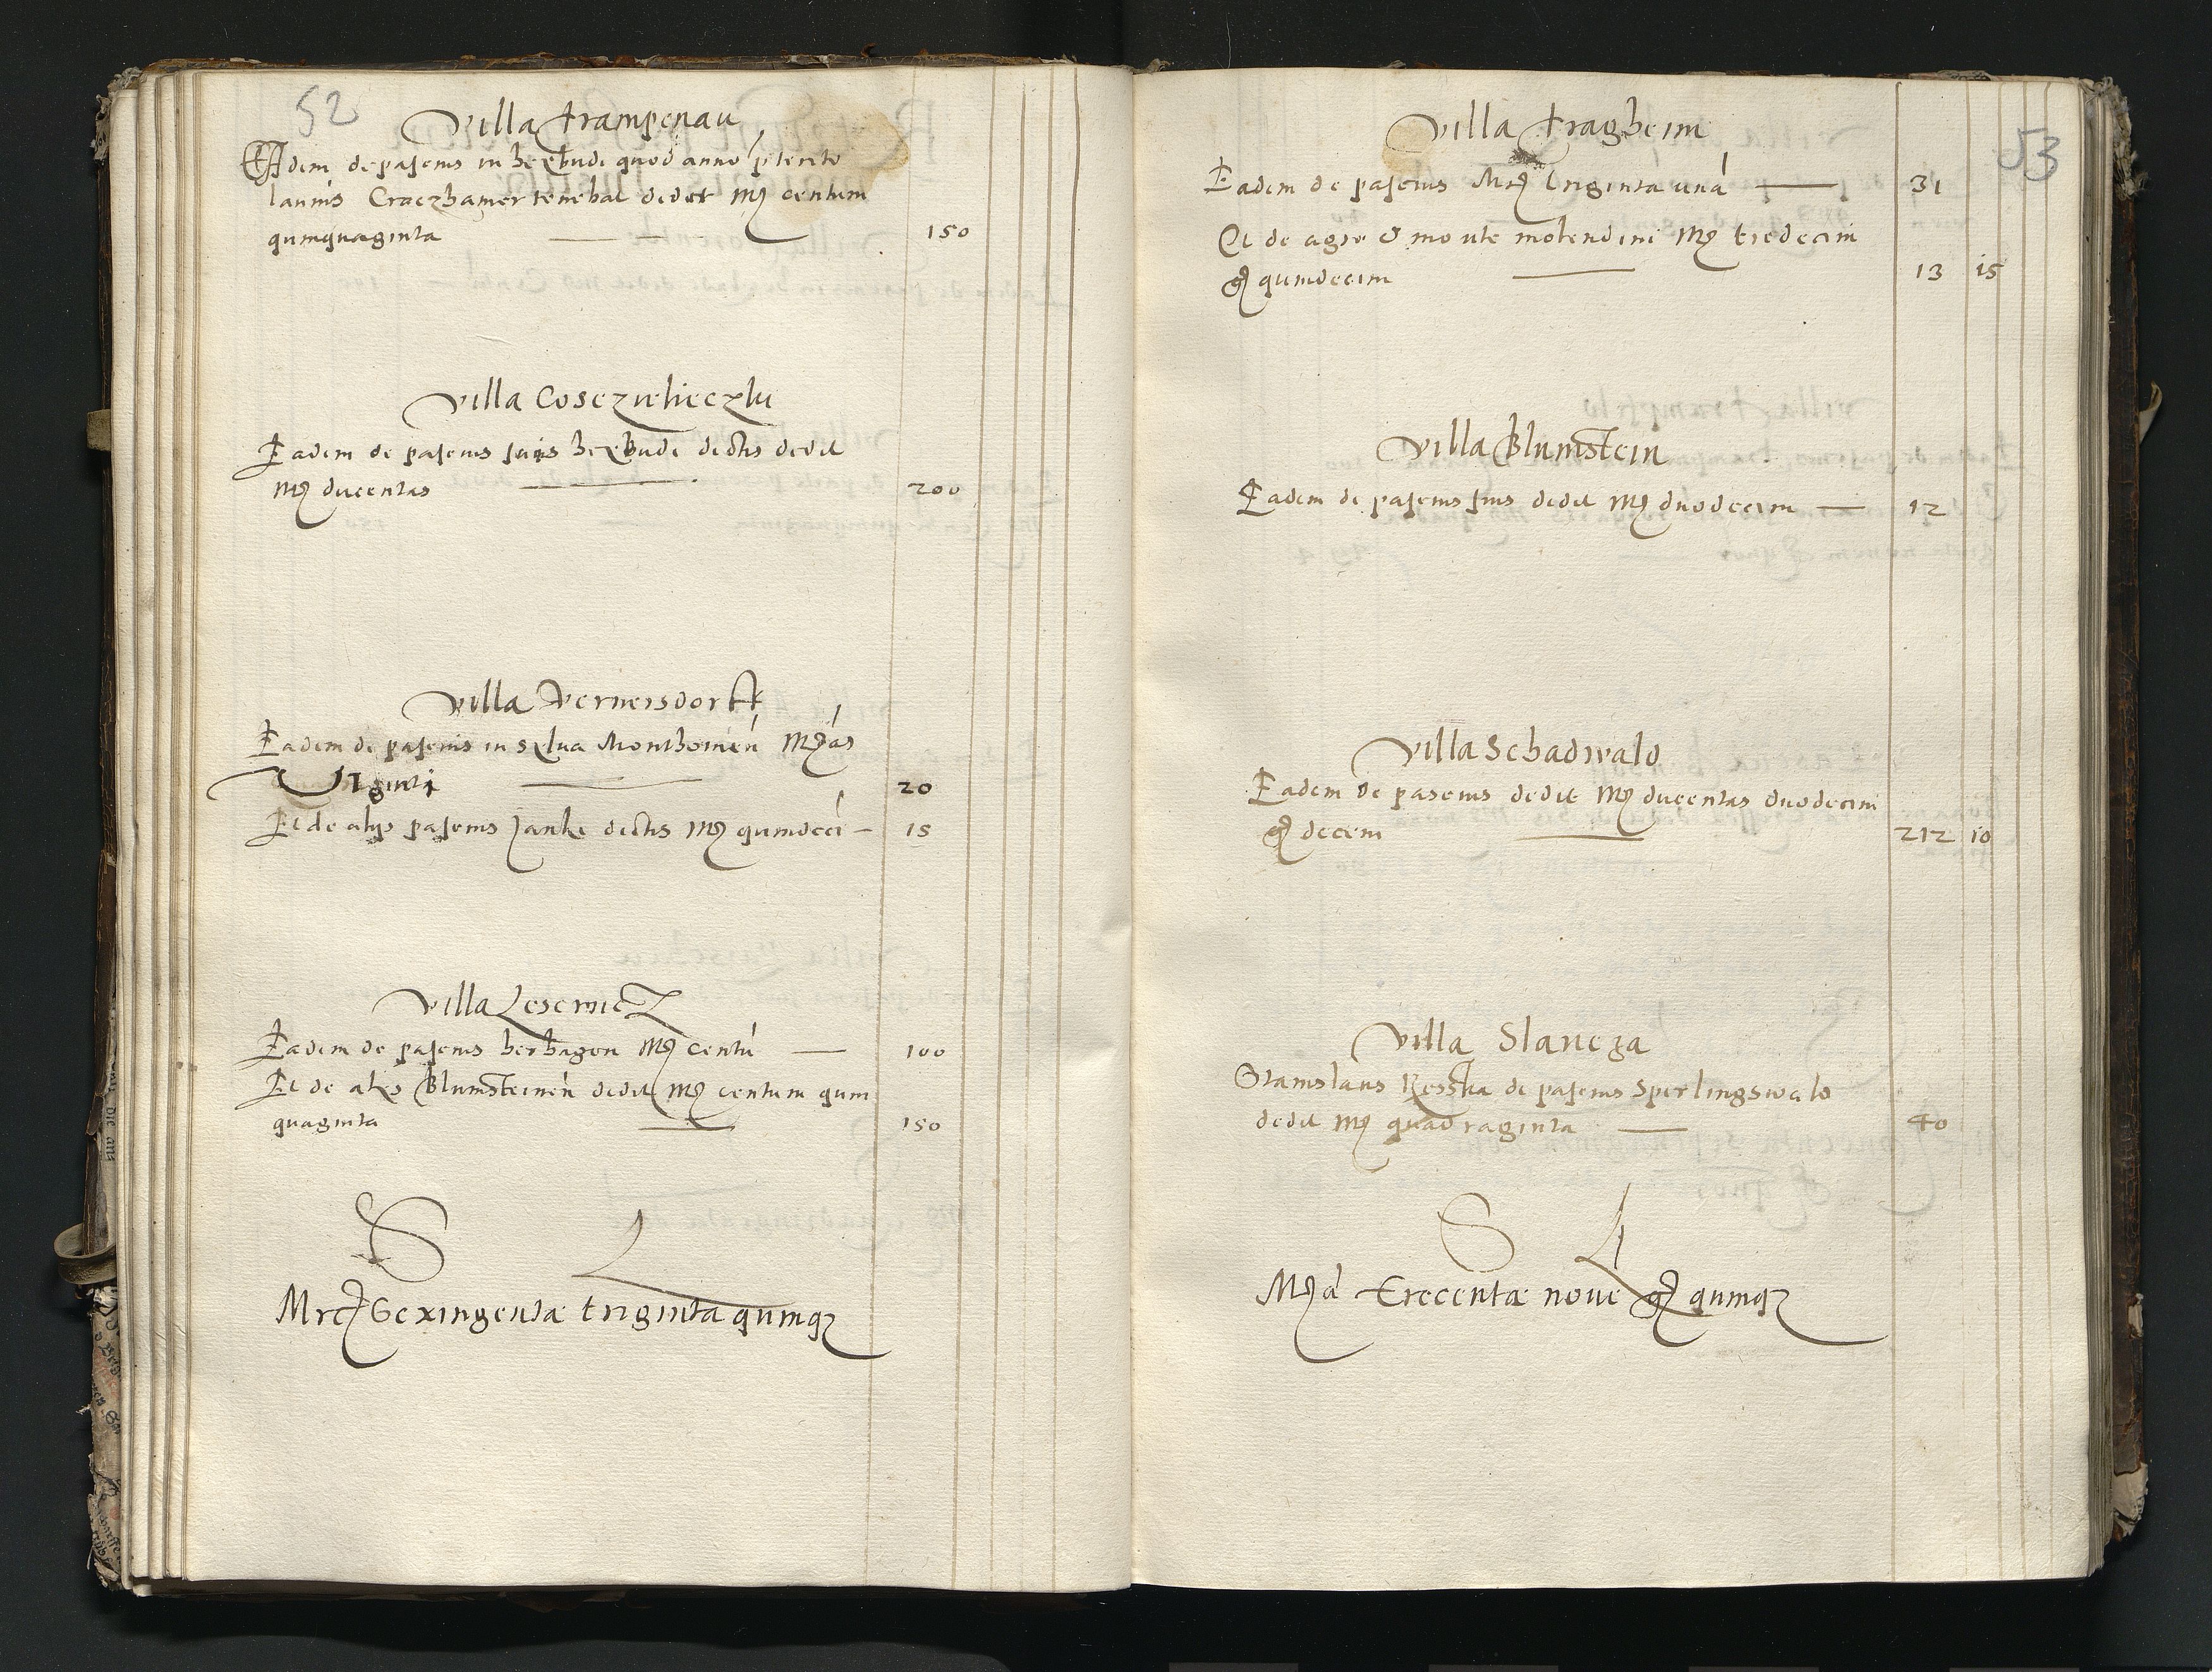 52
Villa Trampenau
Eadem de pascuis in herbudi quod anno pterito
lannis Craczhamer tenebat dedit Mr centum
quinquaginta 150
Villa Coseznehieczlu
Eadem de pascuis suis herbudi dictis dedit
Mr ducentas 200
Villa Vernersdorff
Eadem de pascuis in selua Monthoinen Mrcas
Viginti 20
Et de alys pascuis Janke dictis Mr quindeci 15
Villa Lesewicz
Eadem de pascuis herhagen Mr centu 100
Et de alys Blumsteinen dedit Mr centum quin
quaginta 150
S L
Mrc Sexingentæ triginta quinqz
53
Villa Tragheim
Eadem de pascuis Mrc triginta una 31
Et de agro & monte molendini Mr tredecim
gr quindecim 13 15
Villa Blumstein
Eadem de pascuis suis dedit Mr duodecim 12
Villa Schadwald
Eadem de pascuis dedit Mr ducentas duodecim
gr decem 212 10
Villa Slancza
Stanislaus Kesska de pascuis Sperlingswald
dedit Mr quadraginta 40
S L
Mrca Trecentæ noue gr quinqz